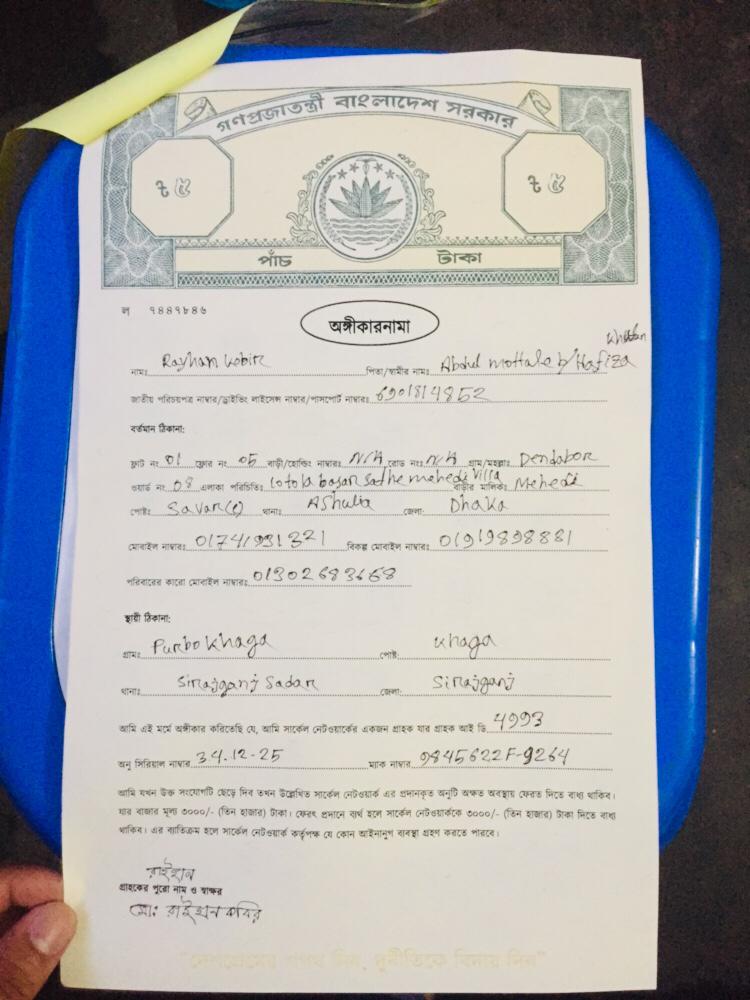 গণপ্রজাতন্ত্রী বাংলাদেশ সরকার
৳ ৫ ৳ ৫
পাঁচ টাকা
ল ৭৪৪৭৮৪৬
অঙ্গীকারনামা
নামঃ Rayhan Kobir পিতা/স্বামীর নামঃ Abdul Mottaleb/Hafiza Khatun
জাতীয় পরিচয়পত্র নাম্বার/ড্রাইভিং লাইসেন্স নাম্বার/পাসপোর্ট নাম্বারঃ 6901814852
বর্তমান ঠিকানা:
ফ্লাট নং 01 ফ্লোর নং 05 বাড়ী/হোল্ডিং নাম্বারঃ N/A রোড নংঃ N/A গ্রাম/মহল্লাঃ Dendabor
ওয়ার্ড নং 08 এলাকা পরিচিতিঃ bazar mehedi villa বাড়ীর মালিকঃ Mehedi
পোষ্টঃ Savar থানাঃ Ashulia জেলা: Dhaka
মোবাইল নাম্বারঃ 01741931321 বিকল্প মোবাইল নাম্বারঃ 01919898881
পরিবারের কারো মোবাইল নাম্বারঃ 01302683668
স্থায়ী ঠিকানা:
গ্রামঃ Purbo Khaga পোষ্ট: Khaga
থানাঃ Sirajganj Sadar জেলা: Sirajganj
আমি এই মর্মে অঙ্গীকার করিতেছি যে, আমি সার্কেল নেটওয়ার্কের একজন গ্রাহক যার গ্রাহক আই ডি 4993
অনু সিরিয়াল নাম্বার 34.12-25 ম্যাক নাম্বার 9845622F-9264
আমি যখন উক্ত সংযোগটি ছেড়ে দিব তখন উল্লেখিত সার্কেল নেটওয়ার্ক এর প্রদানকৃত অনুটি অক্ষত অবস্থায় ফেরত দিতে বাধ্য থাকিব।
যার বাজার মূল্য ৩০০০/- (তিন হাজার) টাকা। ফেরৎ প্রদানে ব্যর্থ হলে সার্কেল নেটওয়ার্ককে ৩০০০/- (তিন হাজার) টাকা দিতে বাধ্য
থাকিব। এর ব্যতিক্রম হলে সার্কেল নেটওয়ার্ক কর্তৃপক্ষ যে কোন আইনানুগ ব্যবস্থা গ্রহণ করতে পারবে।
রাইহান
গ্রাহকের পুরো নাম ও স্বাক্ষর
মো: রাইহান কবির
"দেশপ্রেমের শপথ নিন, দুর্নীতিকে বিদায় দিন"